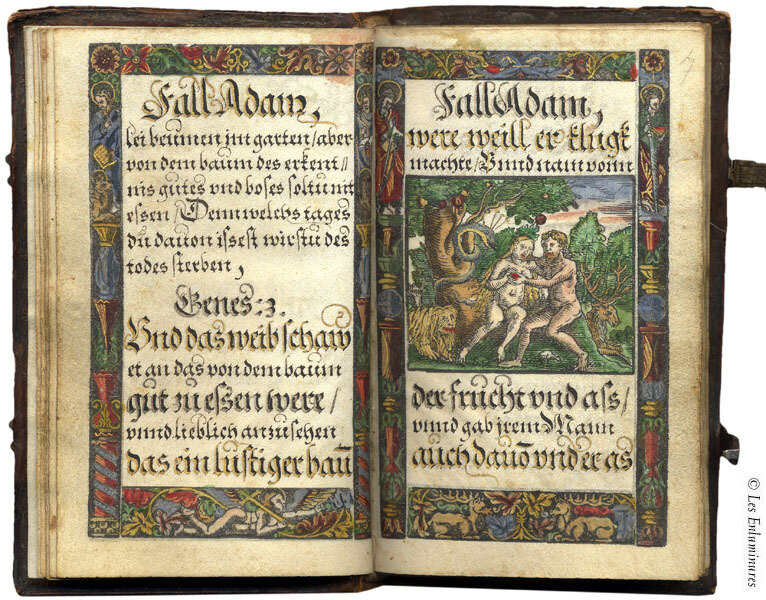 Fall Adam,
lei beumen jm garten / aber
von dem baum des erkent//
nis gutes vnd boses soltu nit
essen / Denn welchs tages
du dauon issest wirstu des
todes sterben,
Genes: 3.
Vnd das weib schaw
et an das von dem baum
gut zu essen were /
vnnd lieblich anzusehen
das ein lustiger baū
Fall Adam,
were weill er klugk
machte / Vnnd nam vonn
der frucht vnd ass /
vnnd gab jrem Mann
auch dauō vnd er as
© Les Enluminures